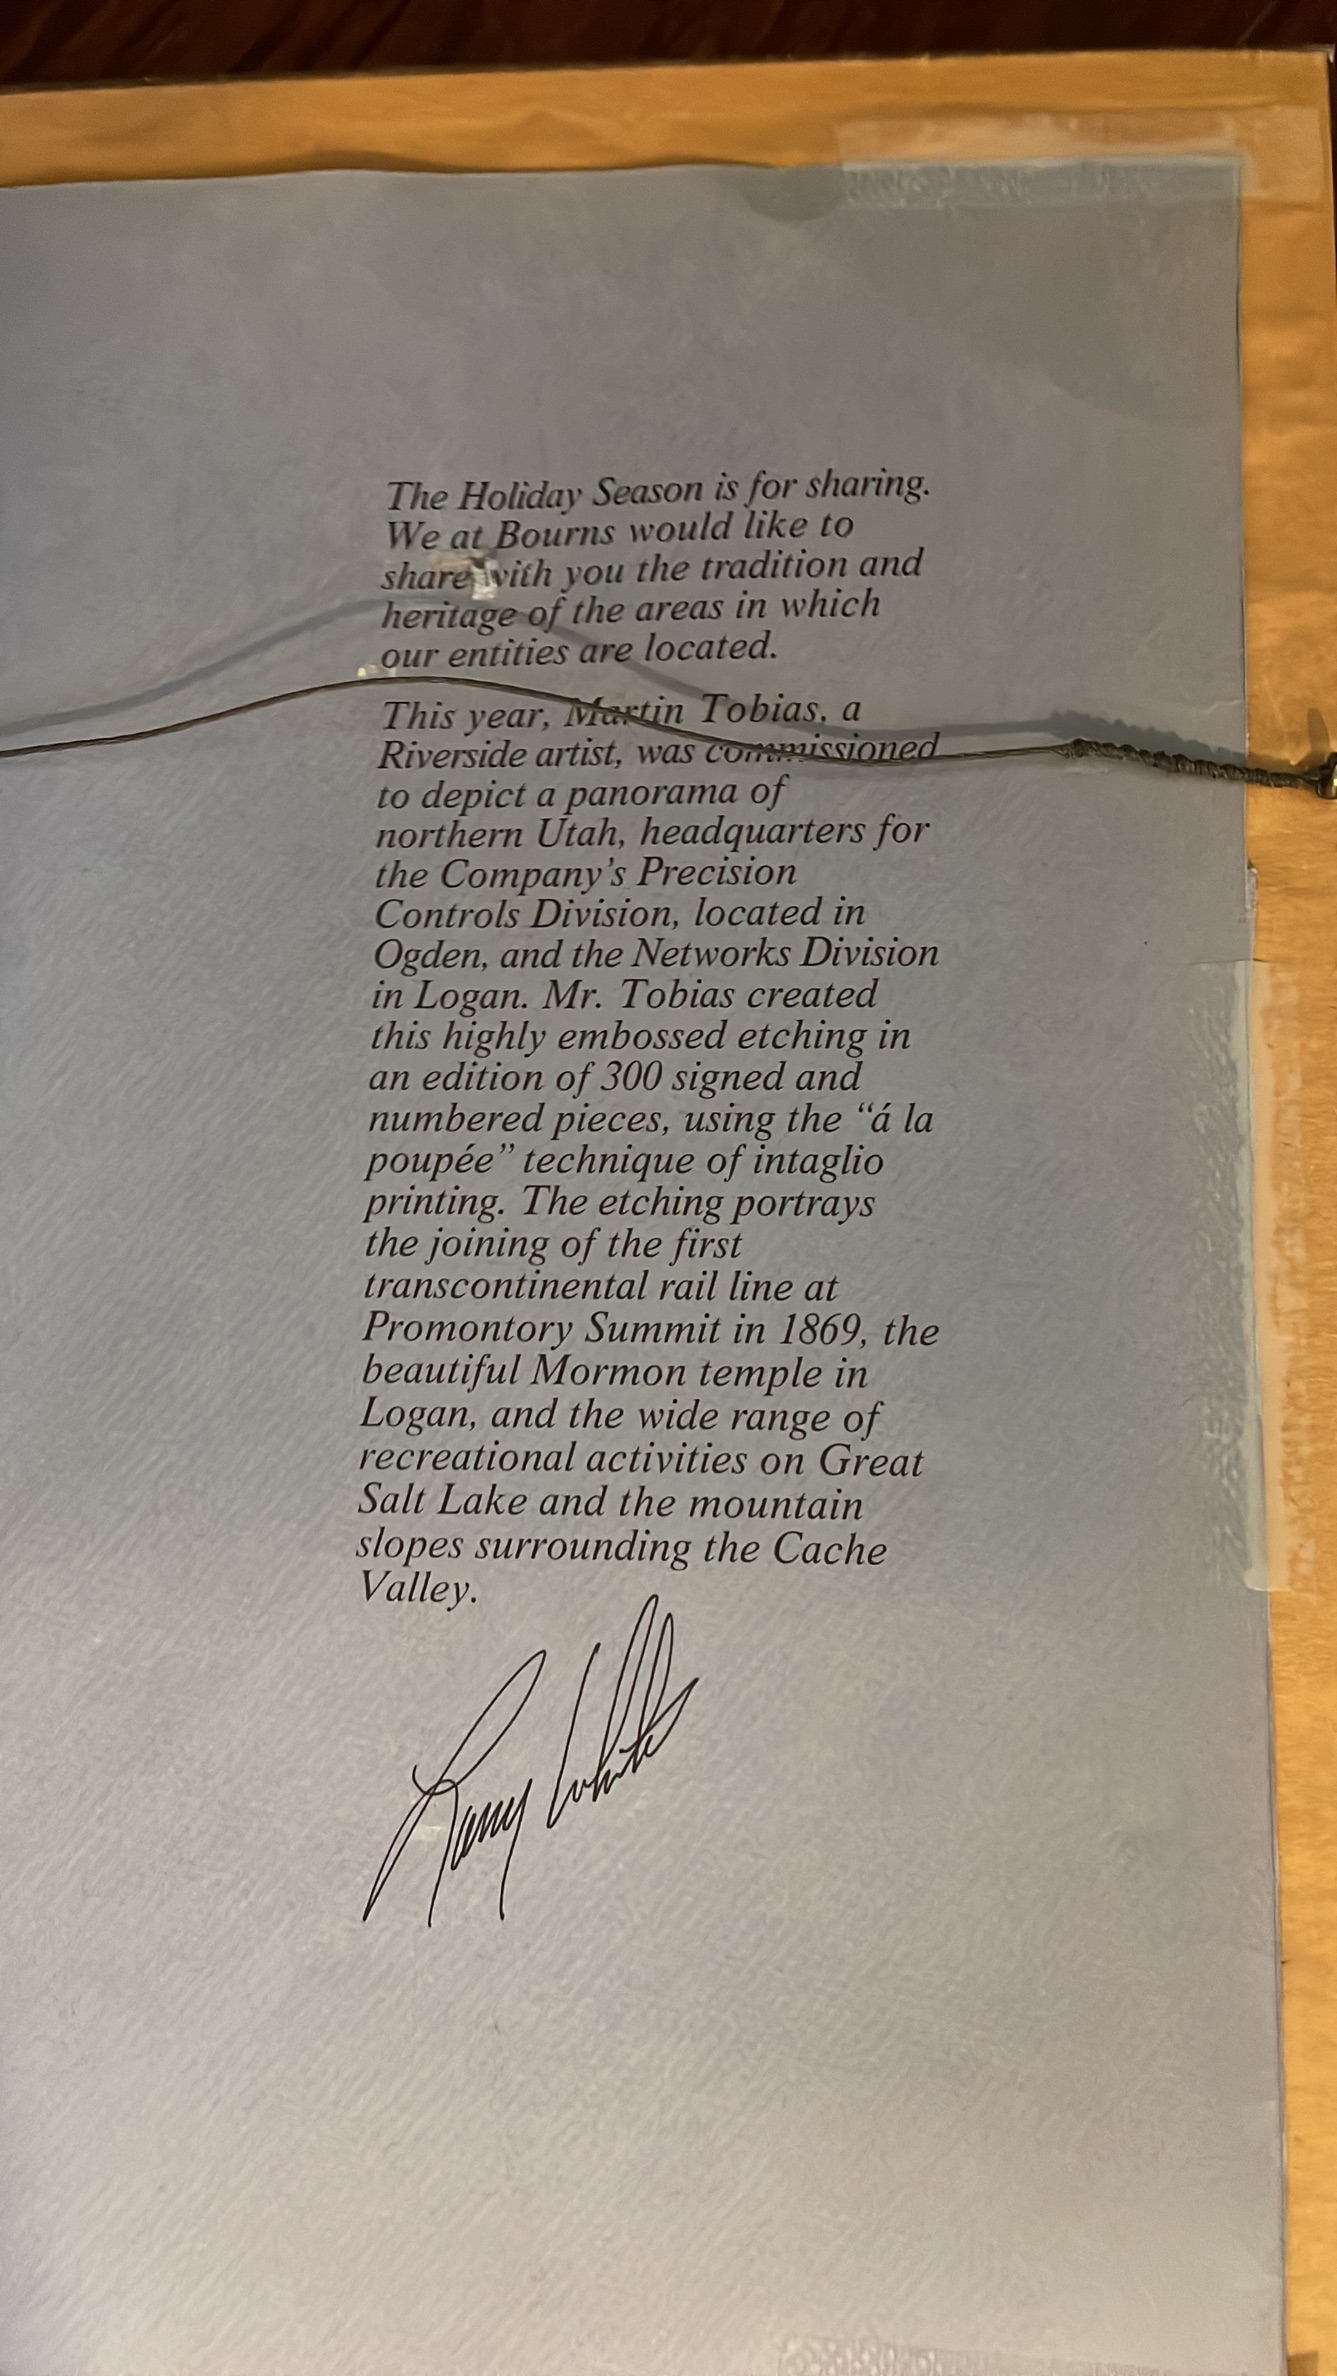 The Holiday Season is for sharing.
We at Bourns would like to
share with you the tradition and
heritage of the areas in which
our entities are located.
This year, Martin Tobias, a
Riverside artist, was commissioned
to depict a panorama of
northern Utah, headquarters for
the Company's Precision
Controls Division, located in
Ogden, and the Networks Division
in Logan. Mr. Tobias created
this highly embossed etching in
an edition of 300 signed and
numbered pieces, using the “á la
poupée” technique of intaglio
printing. The etching portrays
the joining of the first
transcontinental rail line at
Promontory Summit in 1869, the
beautiful Mormon temple in
Logan, and the wide range of
recreational activities on Great
Salt Lake and the mountain
slopes surrounding the Cache
Valley.
Larry White